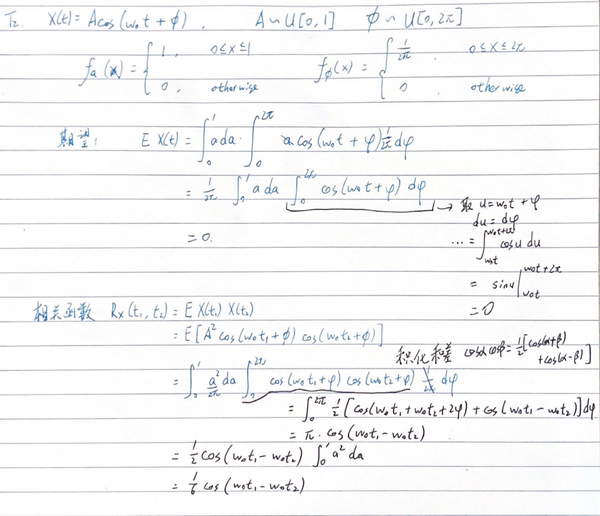 T2. X(t) = A cos(w₀t + φ). A ~ U[0, 1] φ ~ U[0, 2π]
fa(x) = { 1, 0≤x≤1 fφ(x) = { 1/2π, 0≤x≤2π
0, otherwise 0 otherwise
期望: E X(t) = ∫₀¹ a da · ∫₀^{2π} a cos(w₀t + φ) 1/2π dφ
= 1/2π ∫₀¹ a da ∫₀^{2π} cos(w₀t + φ) dφ → 取 u = w₀t + φ
du = dφ
= 0. ... = ∫_{w₀t}^{w₀t+2π} cos u du
= sin u |_{w₀t}^{w₀t+2π}
= 0
相关函数 Rx(t₁, t₂) = E X(t₁) X(t₂)
= E[A² cos(w₀t₁ + φ) cos(w₀t₂ + φ)]
积化和差 cosα cosβ = 1/2[cos(α+β) + cos(α-β)]
= ∫₀¹ a²/2π da ∫₀^{2π} cos(w₀t₁ + φ) cos(w₀t₂ + φ) dφ
= ∫₀^{2π} 1/2 [cos(w₀t₁ + w₀t₂ + 2φ) + cos(w₀t₁ - w₀t₂)] dφ
= π · cos(w₀t₁ - w₀t₂)
= 1/2 cos(w₀t₁ - w₀t₂) ∫₀¹ a² da
= 1/6 cos(w₀t₁ - w₀t₂)